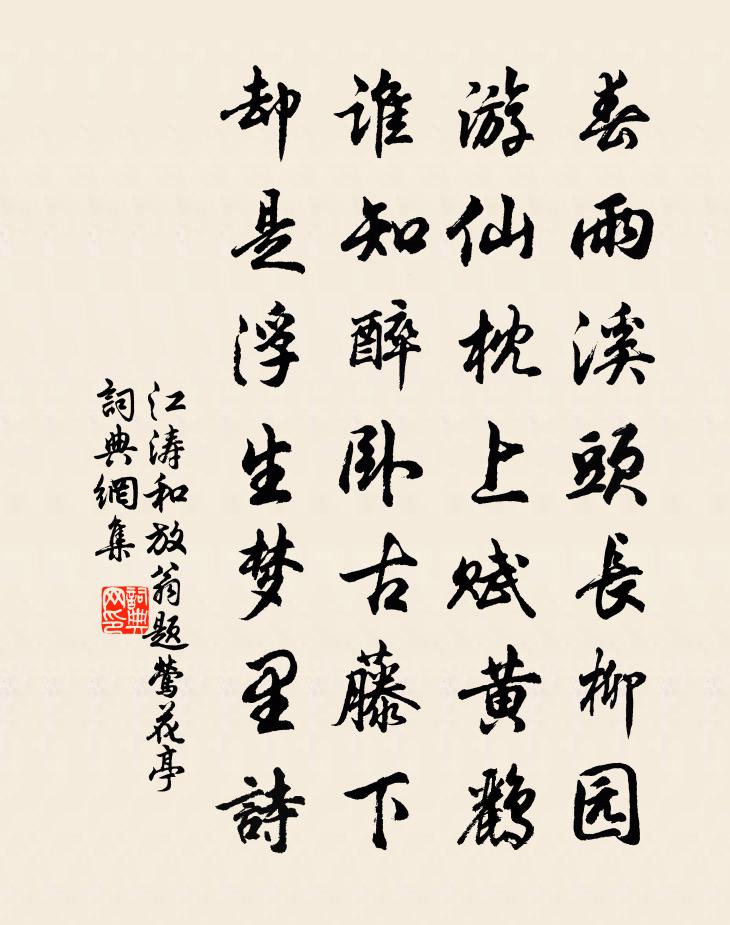 春雨溪頭長柳园
游仙枕上赋黃鸝
谁知醉卧古藤下
却是浮生梦里詩
江涛和放翁題鶯花亭
詞典網集
詞典网印